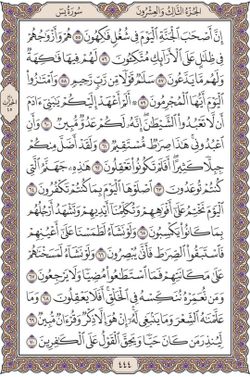 الجزء الثالث والعشرون سورة يس
إن أصحب الجنة اليوم في شغل فكهون ٥٥ هم وأزوجهم
في ظلل على الأرائك متكون ٥٦ لهم فيها فكهة
ولهم ما يدعون ٥٧ سلم قولا من رب رحيم ٥٨ وامتزوا
اليوم أيها المجرمون ٥٩ ألم أعهد إليكم يبني ءادم
أن لا تعبدوا الشيطن إنه لكم عدو مبين ٦٠ وأن
اعبدوني هذا صرط مستقيم ٦١ ولقد أضل منكم
جبلا كثيرا أفلم تكونوا تعقلون ٦٢ هذه جهنم التي
كنتم توعدون ٦٣ اصلوها اليوم بما كنتم تكفرون ٦٤
اليوم نختم على أفوههم وتكلمنا أيديهم وتشهد أرجلهم
بما كانوا يكسبون ٦٥ ولو نشاء لطمسنا على أعينهم
فاستبقوا الصرط فأنى يبصرون ٦٦ ولو نشاء لمسخنهم
على مكانتهم فما استطعوا مضيا ولا يرجعون ٦٧
ومن نعمره ننكسه في الخلق أفلا يعقلون ٦٨ وما
علمنه الشعر وما ينبغي له إن هو إلا ذكر وقرءان مبين ٦٩
لينذر من كان حيا ويحق القول على الكفرين ٧٠
٤٤٤